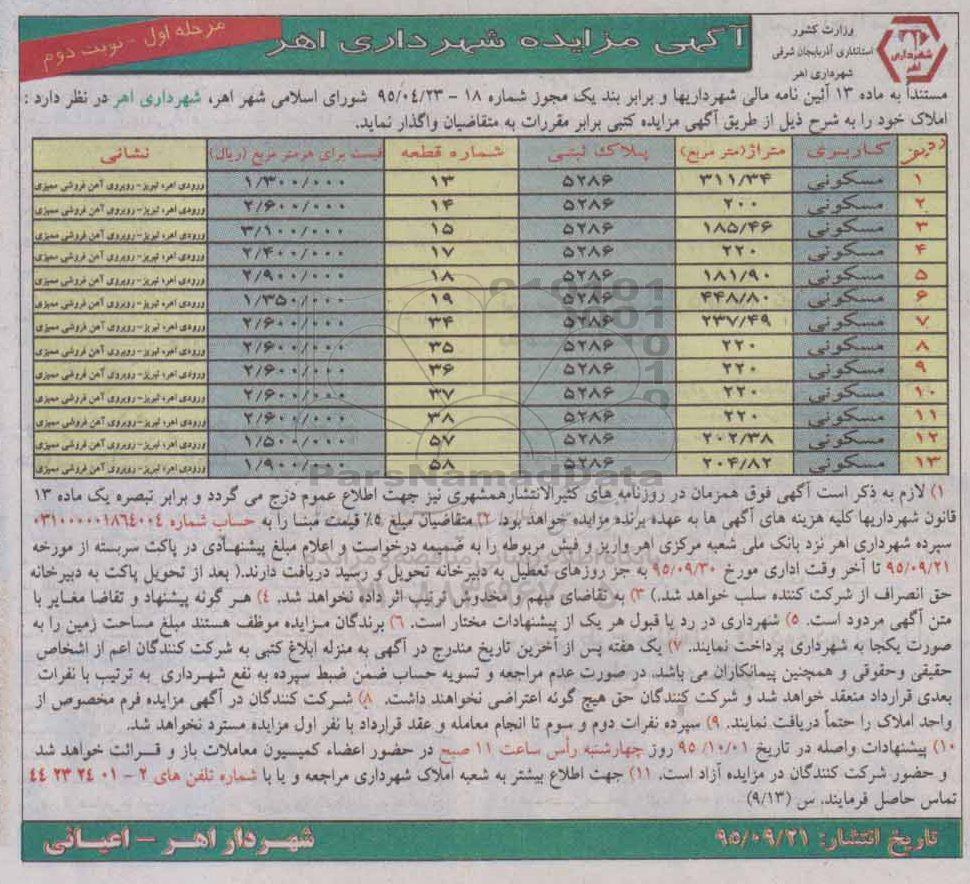 وزارت کشور
استانداری آذربایجان شرقی
شهرداری اهر
شهرداری اهر
آگهی مزایده شهرداری اهر
مرحله اول - نوبت دوم
مستنداً به ماده ۱۳ آئین نامه مالی شهرداریها و برابر بند یک مجوز شماره ۱۸ - ۹۵/۰۴/۲۳ شورای اسلامی شهر اهر، شهرداری اهر در نظر دارد :
املاک خود را به شرح ذیل از طریق آگهی مزایده کتبی برابر مقررات به متقاضیان واگذار نماید.
ردیف کاربری متراژ(متر مربع) پلاک ثبتی شماره قطعه قیمت برای هرمتر مربع (ریال) نشانی
۱ مسکونی ۳۱۱/۳۴ ۵۲۸۶ ۱۳ ۱/۳۰۰/۰۰۰ ورودی اهر، تبریز - روبروی آهن فروشی ممیزی
۲ مسکونی ۲۰۰ ۵۲۸۶ ۱۴ ۲/۶۰۰/۰۰۰ ورودی اهر، تبریز - روبروی آهن فروشی ممیزی
۳ مسکونی ۱۸۵/۴۶ ۵۲۸۶ ۱۵ ۳/۱۰۰/۰۰۰ ورودی اهر، تبریز - روبروی آهن فروشی ممیزی
۴ مسکونی ۲۲۰ ۵۲۸۶ ۱۷ ۲/۴۰۰/۰۰۰ ورودی اهر، تبریز - روبروی آهن فروشی ممیزی
۵ مسکونی ۱۸۱/۹۰ ۵۲۸۶ ۱۸ ۲/۹۰۰/۰۰۰ ورودی اهر، تبریز - روبروی آهن فروشی ممیزی
۶ مسکونی ۴۴۸/۸۰ ۵۲۸۶ ۱۹ ۱/۳۵۰/۰۰۰ ورودی اهر، تبریز - روبروی آهن فروشی ممیزی
۷ مسکونی ۲۳۷/۴۹ ۵۲۸۶ ۳۴ ۲/۶۰۰/۰۰۰ ورودی اهر، تبریز - روبروی آهن فروشی ممیزی
۸ مسکونی ۲۲۰ ۵۲۸۶ ۳۵ ۲/۶۰۰/۰۰۰ ورودی اهر، تبریز - روبروی آهن فروشی ممیزی
۹ مسکونی ۲۲۰ ۵۲۸۶ ۳۶ ۲/۶۰۰/۰۰۰ ورودی اهر، تبریز - روبروی آهن فروشی ممیزی
۱۰ مسکونی ۲۲۰ ۵۲۸۶ ۳۷ ۲/۶۰۰/۰۰۰ ورودی اهر، تبریز - روبروی آهن فروشی ممیزی
۱۱ مسکونی ۲۲۰ ۵۲۸۶ ۳۸ ۲/۶۰۰/۰۰۰ ورودی اهر، تبریز - روبروی آهن فروشی ممیزی
۱۲ مسکونی ۲۰۲/۳۸ ۵۲۸۶ ۵۷ ۱/۵۰۰/۰۰۰ ورودی اهر، تبریز - روبروی آهن فروشی ممیزی
۱۳ مسکونی ۲۰۴/۸۲ ۵۲۸۶ ۵۸ ۱/۹۰۰/۰۰۰ ورودی اهر، تبریز - روبروی آهن فروشی ممیزی
ParsNamadData
۱) لازم به ذکر است آگهی فوق همزمان در روزنامه های کثیرالانتشارهمشهری نیز جهت اطلاع عموم درج می گردد و برابر تبصره یک ماده ۱۳
قانون شهرداریها کلیه هزینه های آگهی ها به عهده برنده مزایده خواهد بود. ۲) متقاضیان مبلغ ۵٪ قیمت مبنا را به حساب شماره ۰۳۱۰۰۰۰۰۱۸۶۴۰۰۴
سپرده شهرداری اهر نزد بانک ملی شعبه مرکزی اهر واریز و فیش مربوطه را به ضمیمه درخواست و اعلام مبلغ پیشنهادی در پاکت سربسته از مورخه
۹۵/۰۹/۲۱ تا آخر وقت اداری مورخ ۹۵/۰۹/۳۰ به جز روزهای تعطیل به دبیرخانه تحویل و رسید دریافت دارند.( بعد از تحویل پاکت به دبیرخانه
حق انصراف از شرکت کننده سلب خواهد شد.) ۳) به تقاضای مبهم و مخدوش ترتیب اثر داده نخواهد شد. ۴) هر گونه پیشنهاد و تقاضا مغایر با
متن آگهی مردود است. ۵) شهرداری در رد یا قبول هر یک از پیشنهادات مختار است. ۶) برندگان مزایده موظف هستند مبلغ مساحت زمین را به
صورت یکجا به شهرداری پرداخت نمایند. ۷) یک هفته پس از آخرین تاریخ مندرج در آگهی به منزله ابلاغ کتبی به شرکت کنندگان اعم از اشخاص
حقیقی وحقوقی و همچنین پیمانکاران می باشد. در صورت عدم مراجعه و تسویه حساب ضمن ضبط سپرده به نفع شهرداری به ترتیب با نفرات
بعدی قرارداد منعقد خواهد شد و شرکت کنندگان حق هیچ گونه اعتراضی نخواهند داشت. ۸) شرکت کنندگان در آگهی مزایده فرم مخصوص از
واحد املاک را حتماً دریافت نمایند. ۹) سپرده نفرات دوم و سوم تا انجام معامله و عقد قرارداد با نفر اول مزایده مسترد نخواهد شد.
۱۰) پیشنهادات واصله در تاریخ ۹۵/۱۰/۰۱ روز چهارشنبه رأس ساعت ۱۱ صبح در حضور اعضاء کمیسیون معاملات باز و قرائت خواهد شد
و حضور شرکت کنندگان در مزایده آزاد است. ۱۱) جهت اطلاع بیشتر به شعبه املاک شهرداری مراجعه و یا با شماره تلفن های ۲ - ۰۱ ۲۴ ۲۳ ۴۴
تماس حاصل فرمایند. س (۹/۱۳)
تاریخ انتشار: ۹۵/۰۹/۲۱
شهردار اهر - اعیانی